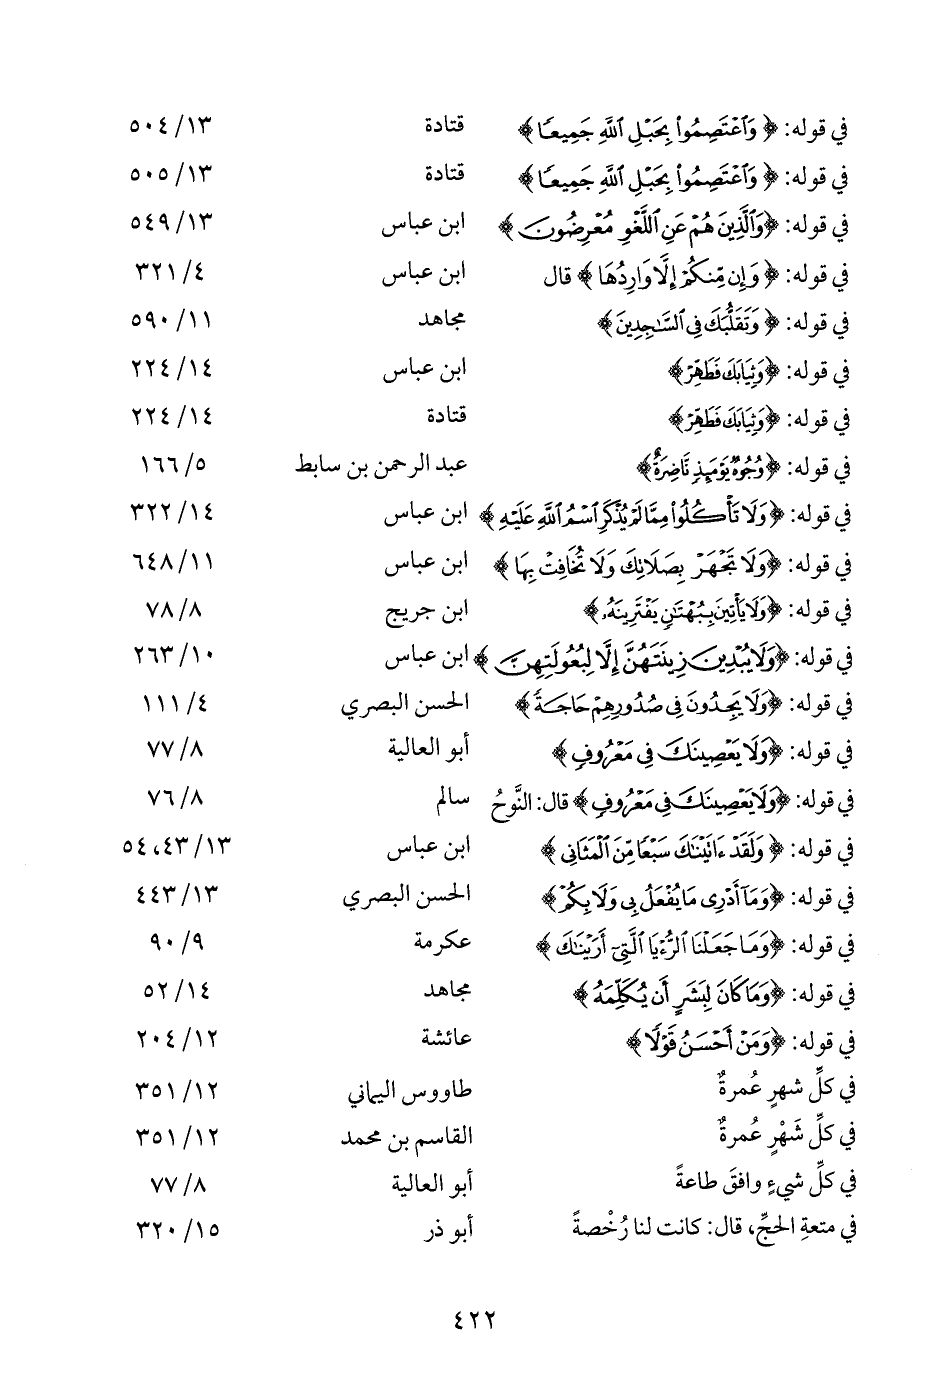 في قوله: ﴿وَاعْتَصِمُوا بِحَبْلِ اللَّهِ جَمِيعًا﴾ قتادة ١٣/ ٥٠٤
في قوله: ﴿وَاعْتَصِمُوا بِحَبْلِ اللَّهِ جَمِيعًا﴾ قتادة ١٣/ ٥٠٥
في قوله: ﴿وَالَّذِينَ هُمْ عَنِ اللَّغْوِ مُعْرِضُونَ﴾ ابن عباس ١٣/ ٥٤٩
في قوله: ﴿وَإِن مِّنكُمْ إِلَّا وَارِدُهَا﴾ قال ابن عباس ٤/ ٣٢١
في قوله: ﴿وَتَقَلُّبَكَ فِي السَّاجِدِينَ﴾ مجاهد ١١/ ٥٩٠
في قوله: ﴿وَثِيَابَكَ فَطَهِّرْ﴾ ابن عباس ١٤/ ٢٢٤
في قوله: ﴿وَثِيَابَكَ فَطَهِّرْ﴾ قتادة ١٤/ ٢٢٤
في قوله: ﴿وُجُوهٌ يَوْمَئِذٍ نَّاضِرَةٌ﴾ عبد الرحمن بن سابط ٥/ ١٦٦
في قوله: ﴿وَلَا تَأْكُلُوا مِمَّا لَمْ يُذْكَرِ اسْمُ اللَّهِ عَلَيْهِ﴾ ابن عباس ١٤/ ٣٢٢
في قوله: ﴿وَلَا تَجْهَرْ بِصَلَاتِكَ وَلَا تُخَافِتْ بِهَا﴾ ابن عباس ١١/ ٦٤٨
في قوله: ﴿وَلَا يَأْتِينَ بِبُهْتَانٍ يَفْتَرِينَهُ﴾ ابن جريج ٨/ ٧٨
في قوله: ﴿وَلَا يُبْدِينَ زِينَتَهُنَّ إِلَّا لِبُعُولَتِهِنَّ﴾ ابن عباس ١٠/ ٢٦٣
في قوله: ﴿وَلَا يَجِدُونَ فِي صُدُورِهِمْ حَاجَةً﴾ الحسن البصري ٤/ ١١١
في قوله: ﴿وَلَا يَعْصِينَكَ فِي مَعْرُوفٍ﴾ أبو العالية ٨/ ٧٧
في قوله: ﴿وَلَا يَعْصِينَكَ فِي مَعْرُوفٍ﴾ قال: النَّوحُ سالم ٨/ ٧٦
في قوله: ﴿وَلَقَدْ ءَاتَيْنَاكَ سَبْعًا مِّنَ الْمَثَانِي﴾ ابن عباس ١٣/ ٤٣، ٥٤
في قوله: ﴿وَمَا أَدْرِي مَا يُفْعَلُ بِي وَلَا بِكُمْ﴾ الحسن البصري ١٣/ ٤٤٣
في قوله: ﴿وَمَا جَعَلْنَا الرُّءْيَا الَّتِي أَرَيْنَاكَ﴾ عكرمة ٩/ ٩٠
في قوله: ﴿وَمَا كَانَ لِبَشَرٍ أَن يُكَلِّمَهُ﴾ مجاهد ١٤/ ٥٢
في قوله: ﴿وَمَنْ أَحْسَنُ قَوْلًا﴾ عائشة ١٢/ ٢٠٤
في كلِّ شهرٍ عُمرةٌ طاووس اليماني ١٢/ ٣٥١
في كلِّ شَهْرٍ عُمرةٌ القاسم بن محمد ١٢/ ٣٥١
في كلِّ شيءٍ وافقَ طاعةً أبو العالية ٨/ ٧٧
في متعةِ الحجِّ، قال: كانت لنا رُخْصةً أبو ذر ١٥/ ٣٢٠
٤٢٢